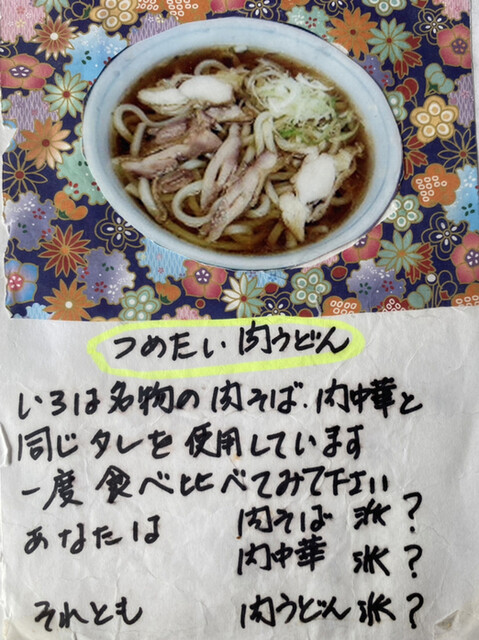 つめたい肉うどん
いろは名物の肉そば、肉中華と
同じタレを使用しています
一度食べ比べてみて下さい
あなたは 肉そば 派?
肉中華 派?
それとも 肉うどん派?